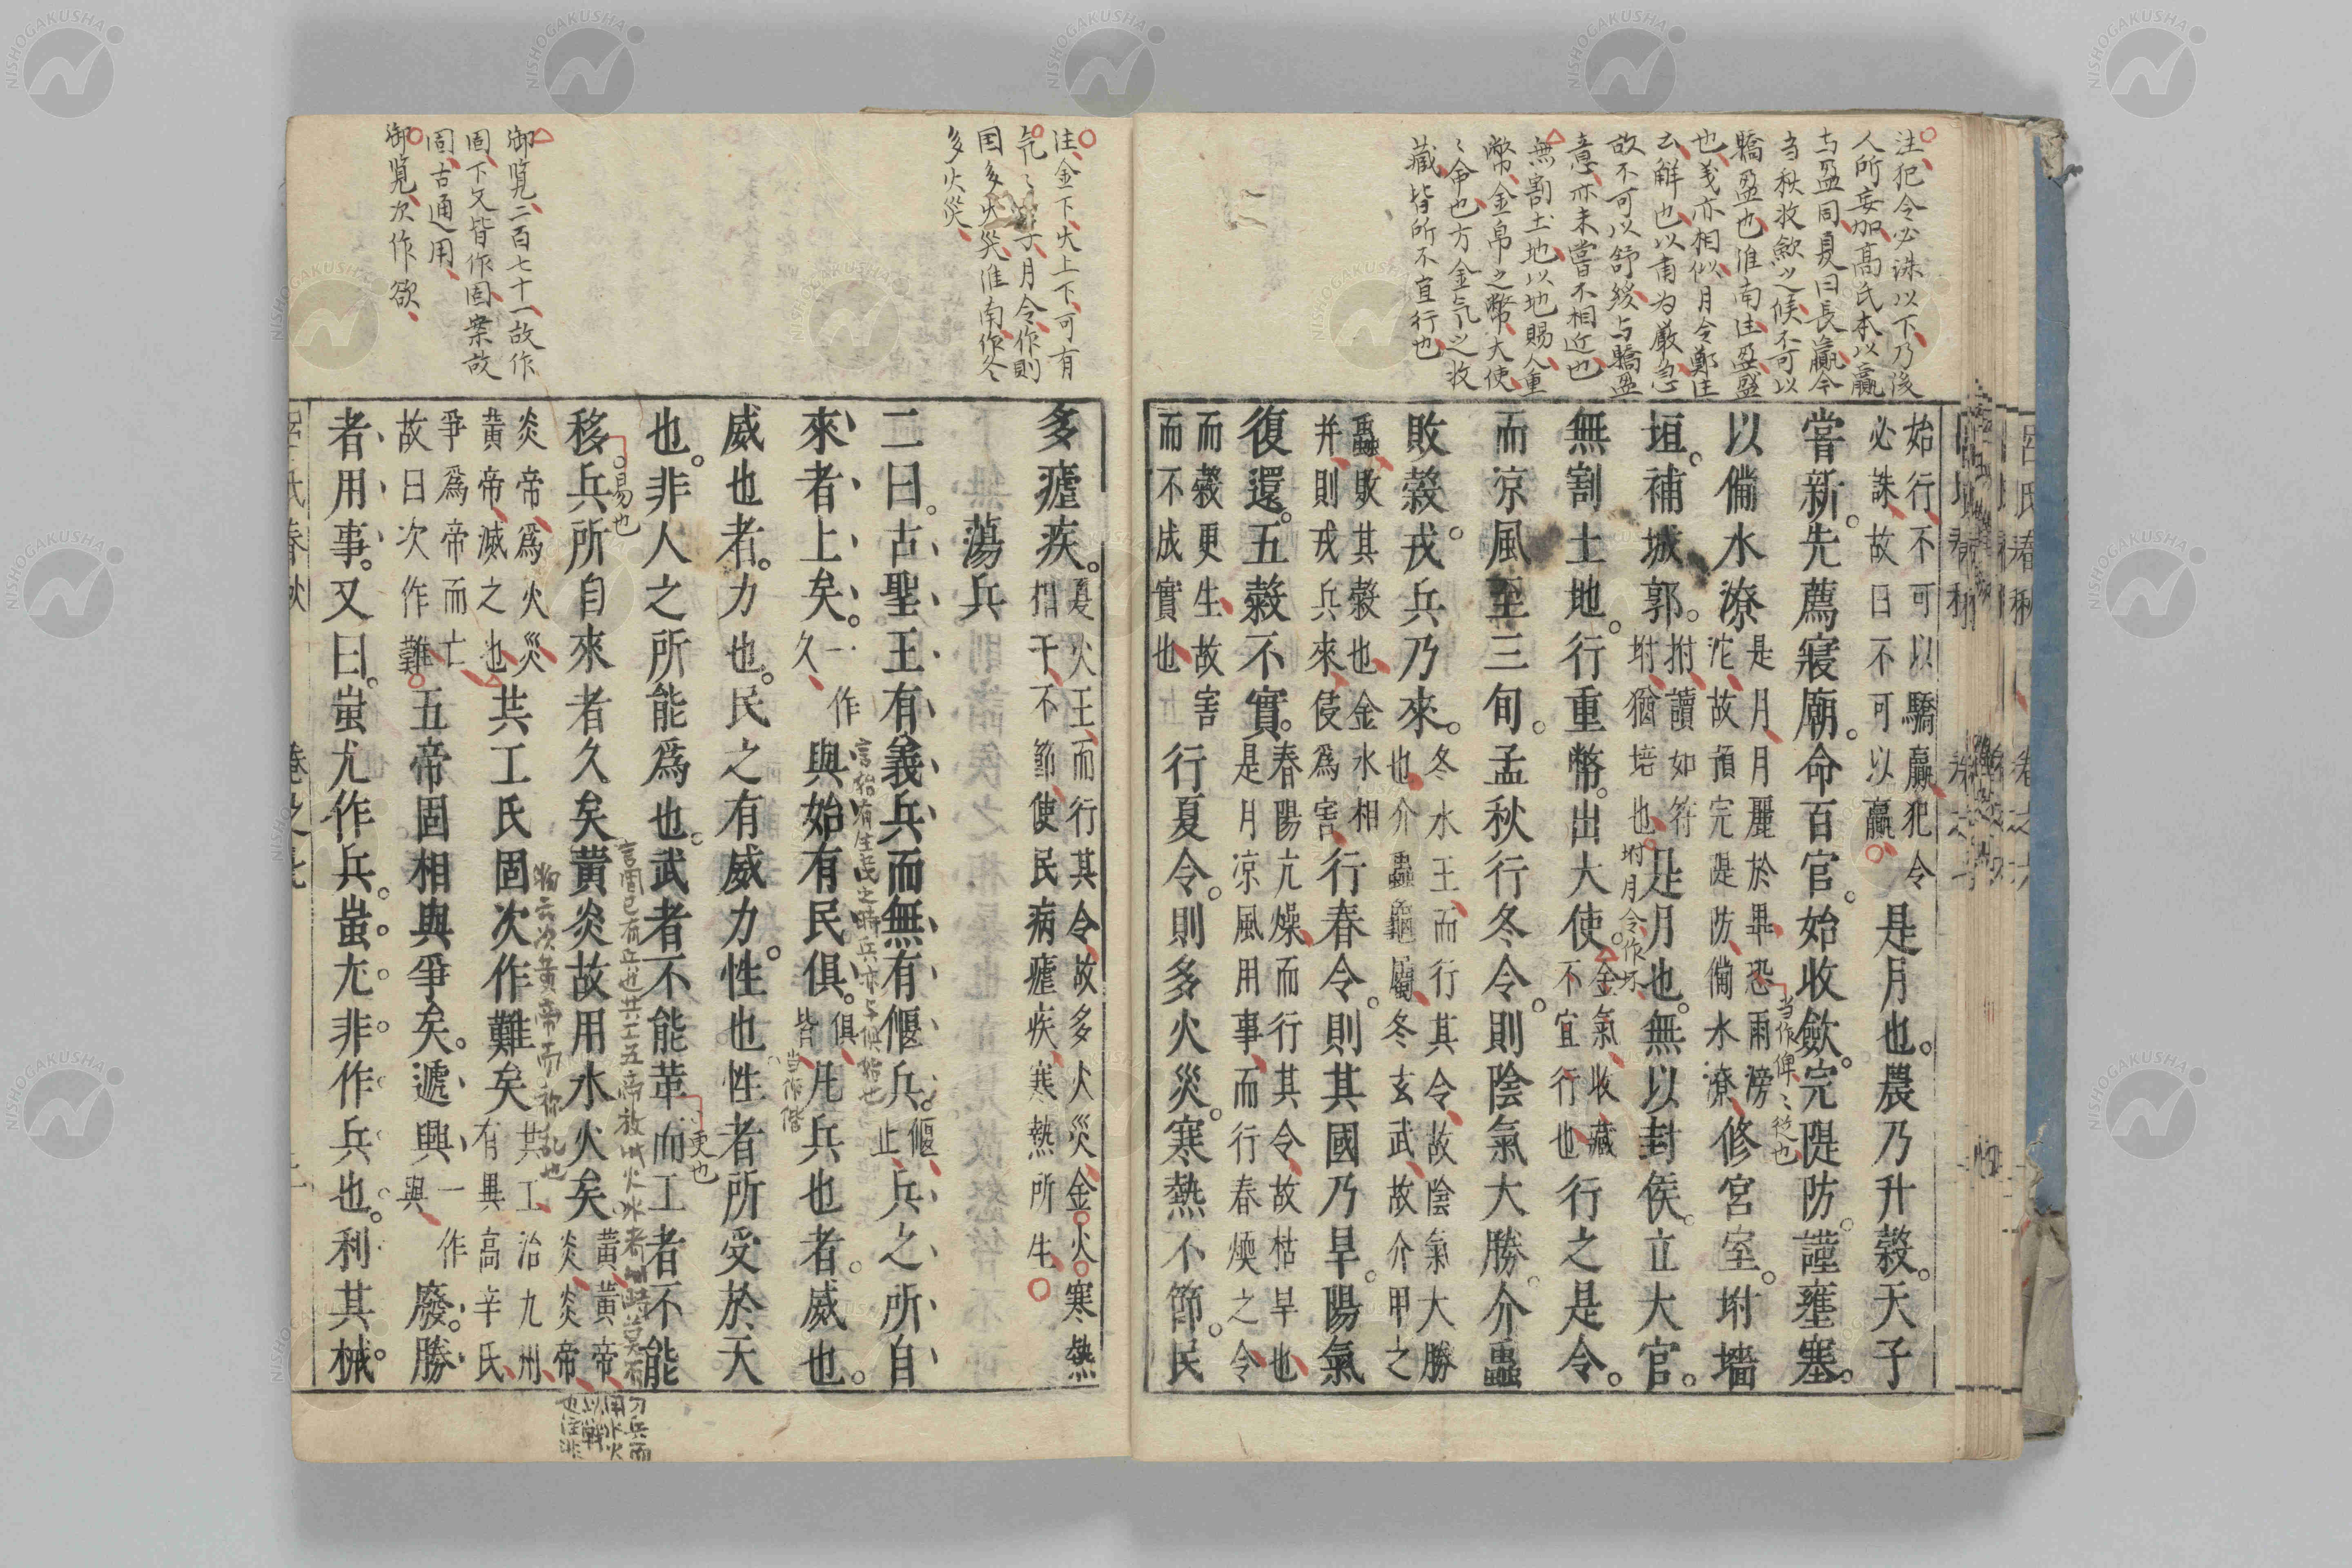 注犯令必誅以下乃後
人所妄加高氏本以贏
与盈同夏曰長贏今
当秋收斂之候不可以
驕盈也淮南注盈盛
也義亦相似月令鄭注
云解也以甫为嚴急
故不可以舒緩与驕盈
意亦未嘗不相近也
無割土地以地賜人重
幣金帛之幣大使
〻命也方金気之收
藏皆所不宜行也
始行不可以驕贏犯令
必誅故曰不可以贏
是月也農乃升穀天子
嘗新先薦寢廟命百官始收斂完隄防謹壅塞
以備水潦
是月月麗於畢恐雨滂
沱故預完隄防備水潦
当作俾〻從也
修宮室坿墻
垣補城郭
坿讀如符
坿猶培也
坿月令作坏
是月也無以封侯立大官
無割土地行重幣出大使
金氣收藏
不宜行也
行之是令
而涼風至三旬孟秋行冬令則陰氣大勝介蟲
敗穀戎兵乃來
冬水王而行其令故陰氣大勝
也介蟲龜屬冬玄武故介甲之
蟲敗其穀也金水相
并則戎兵來侵為害
行春令則其國乃旱陽氣
復還五穀不實
春陽亢燥而行其令故枯旱也
是月涼風用事而行春煗之令
而穀更生故害
而不成實也
行夏令則多火災寒熱不節民
注金下火上下可有
気〻字月令作則
国多火災淮南作冬
多火災
御覧二百七十一故作
固下文皆作固案故
固古通用
御覧次作欲
多瘧疾
夏火王而行其令故多火災金火寒熱
相干不節使民病瘧疾寒熱所生
蕩兵
二曰古聖王有義兵而無有偃兵
偃
止
兵之所自
來者上矣
一作
久
與始有民俱
俱
皆
当作偕
凡兵也者威也
言始有生民之時兵亦与俱始也
威也者力也民之有威力性也性者所受於天
也非人之所能為也武者不能革而工者不能
更也
移兵所自來者久矣黃炎故用水火矣
易也
黃黃帝
炎炎帝
炎帝為火災
黃帝滅之也
共工氏固次作難矣
共工治九州
有異高辛氏
爭為帝而亡
故曰次作難
五帝固相與爭矣遞興
一作
與
廢勝
者用事又曰蚩尤作兵蚩尤非作兵也利其械